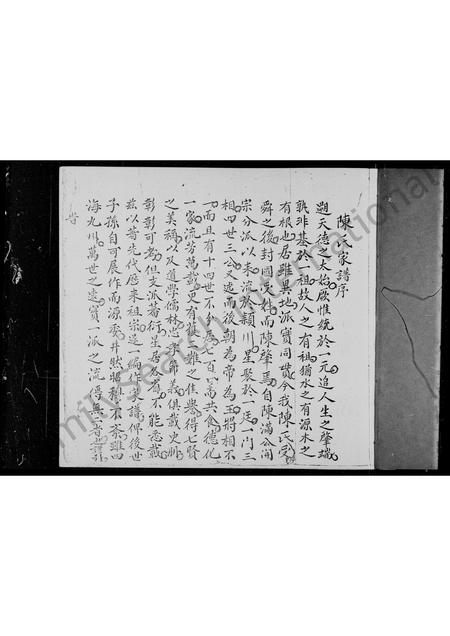 陳氏家譜序
遡天德之太始厥惟統於一元追人生之肇端
孰非基於祖故人之有祖猶水之有源木之
有根也居雖異地派實同
今我陳氏受
舜之後封國受姓而陳肇焉自陳滿公開
宗分派以來流於潁川星聚於
廷一門三
相四世三公又迹而後朝為帝為王將相不
一而且有十四世不分居七百口共食德化
一家流芳萬載更有難之佳譽得七賢
之美稱以及道學儒林忠孝節義俱載史冊
彰彰可考但支派蕃衍星居不能悉載
茲以著先代歷來祖宗逐一編作家譜俾後世
子孫自可展作而源委井然昭穆不紊雖四
海九州萬世之遠實一派之流
family
international